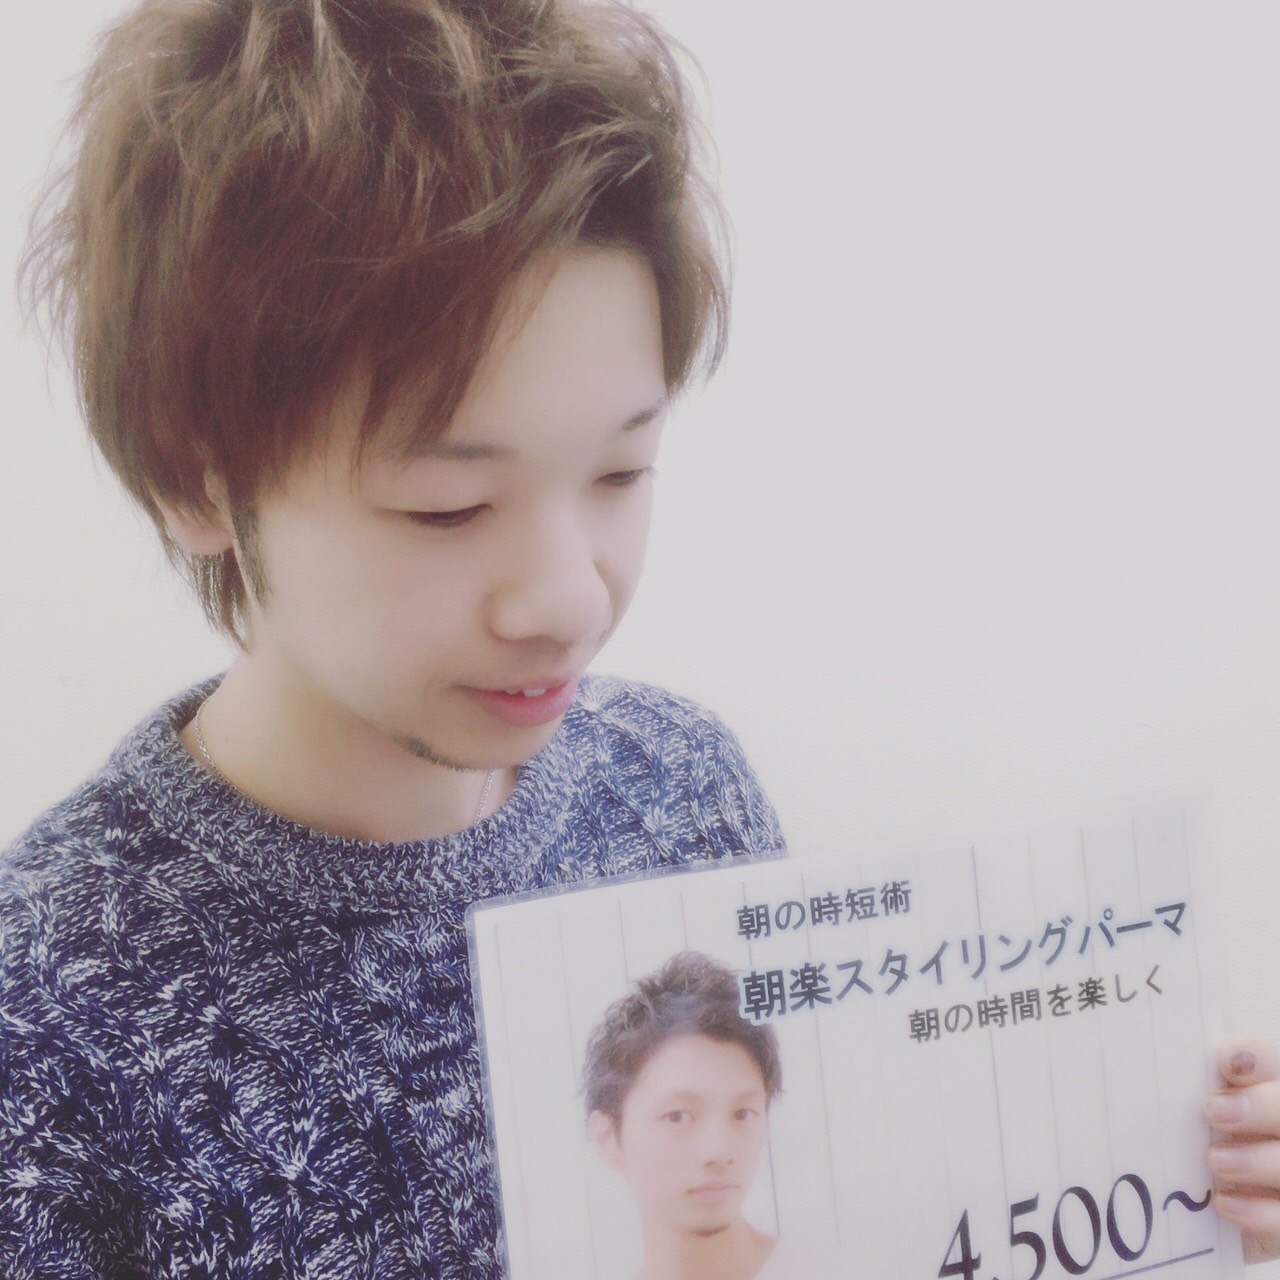 朝の時短術
朝楽スタイリングパーマ
朝の時間を楽しく
4,500~